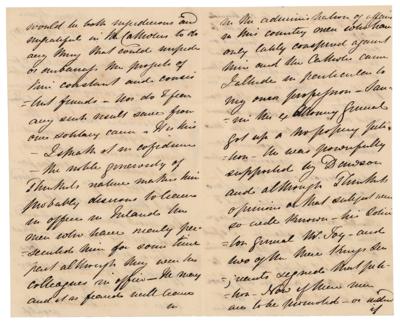 would be both injudicious and
ungrateful in the Catholics to do
any thing that could impede
or embarrass the projects of
their constant and consis
-tent friends - Nor do I fear
any such result save from
one solitary cause - It is this
- I speak it in confidence
- The noble generosity of
nature makes him
probably desirous to leave
in office in Ireland the
men who have merely per
-secuted him for some time
past although they were his
colleagues in office - He may
and it is feared will leave
in
in the administration of affairs
in this country men who have
only lately conspired against
him and the Catholic cause
I allude in particular to
my own profession - Sau
-rin the ex Attorney General
got up a No popery peti
-tion - He was powerfully
supported by
and although
opinions on that subject were
so well known - his Solici
-tor General Mr. Joy - and
two of the three things Ser
-jeants signed that peti
-tion - Now if these men
are to be promoted - or indeed